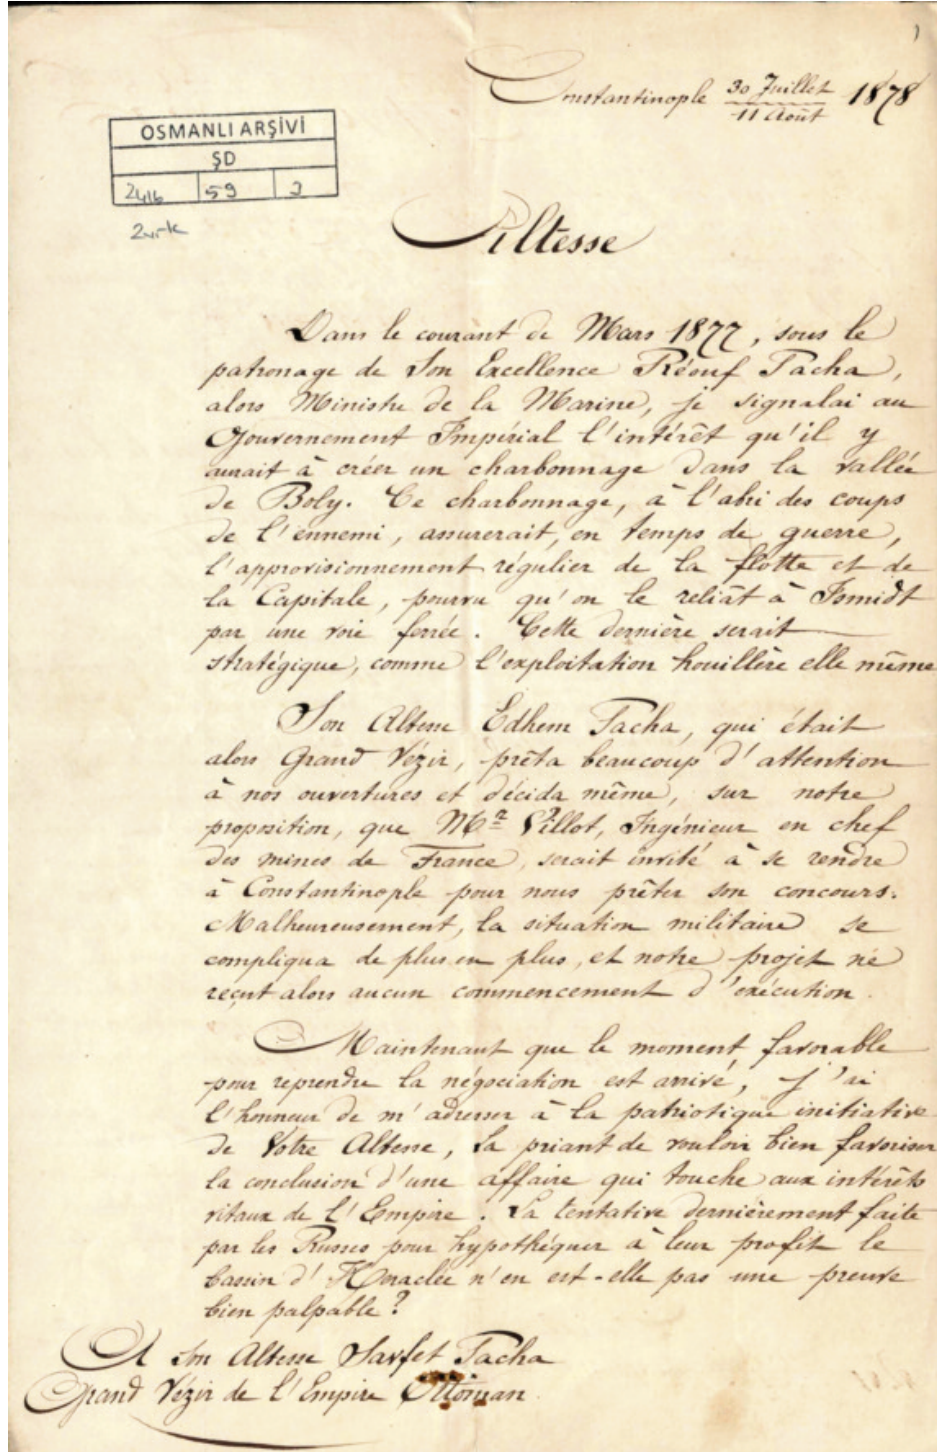 )
Constantinople 30 Juillet 1878
11 Août
OSMANLI ARŞİVİ
ŞD
2416 59 2
2 vrk
Altesse
Dans le courant de Mars 1877, sous le
patronage de Son Excellence Réouf Pacha,
alors Ministre de la Marine, je signalai au
Gouvernement Impérial l'intérêt qu'il y
aurait à créer un charbonnage dans la vallée
de Boly. Ce charbonnage, à l'abri des coups
de l'ennemi, assurerait, en temps de guerre,
l'approvisionnement régulier de la flotte et de
la Capitale, pourvu qu'on le reliât à Ismidt
par une voie ferrée. Cette dernière serait
stratégique, comme l'exploitation houillère elle même
Son Altesse Edhem Pacha, qui était
alors Grand Vézir, prêta beaucoup d'attention
à nos ouvertures et décida même, sur notre
proposition, que Mr Villot, Ingénieur en chef
des mines de France, serait invité à se rendre
à Constantinople pour nous prêter son concours.
Malheureusement, la situation militaire se
compliqua de plus en plus, et notre projet ne
reçut alors aucun commencement d'exécution.
Maintenant que le moment favorable
pour reprendre la négociation est arrivé, j'ai
l'honneur de m'adresser à la patriotique initiative
de Votre Altesse, la priant de vouloir bien favoriser
la conclusion d'une affaire qui touche aux intérêts
vitaux de l'Empire. La tentative dernièrement faite
par les Russes pour hypothéquer à leur profit le
bassin d'Héraclée n'en est-elle pas une preuve
bien palpable?
A Son Altesse Savfet Pacha
Grand Vézir de l'Empire Ottoman.